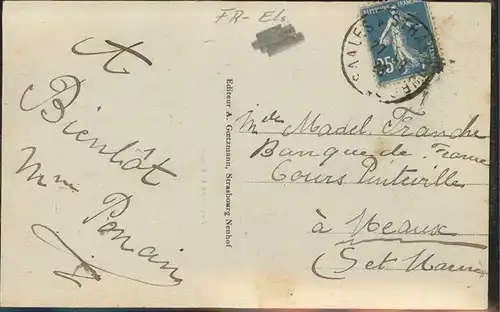 FR- Els
A
Bientôt
Mme
Editeur A. Gœtzmann, Strasbourg-Neuhof
25
Mde Madel. Franche
Banque de France
Cours Pinteville
à Meaux
(Set Marne